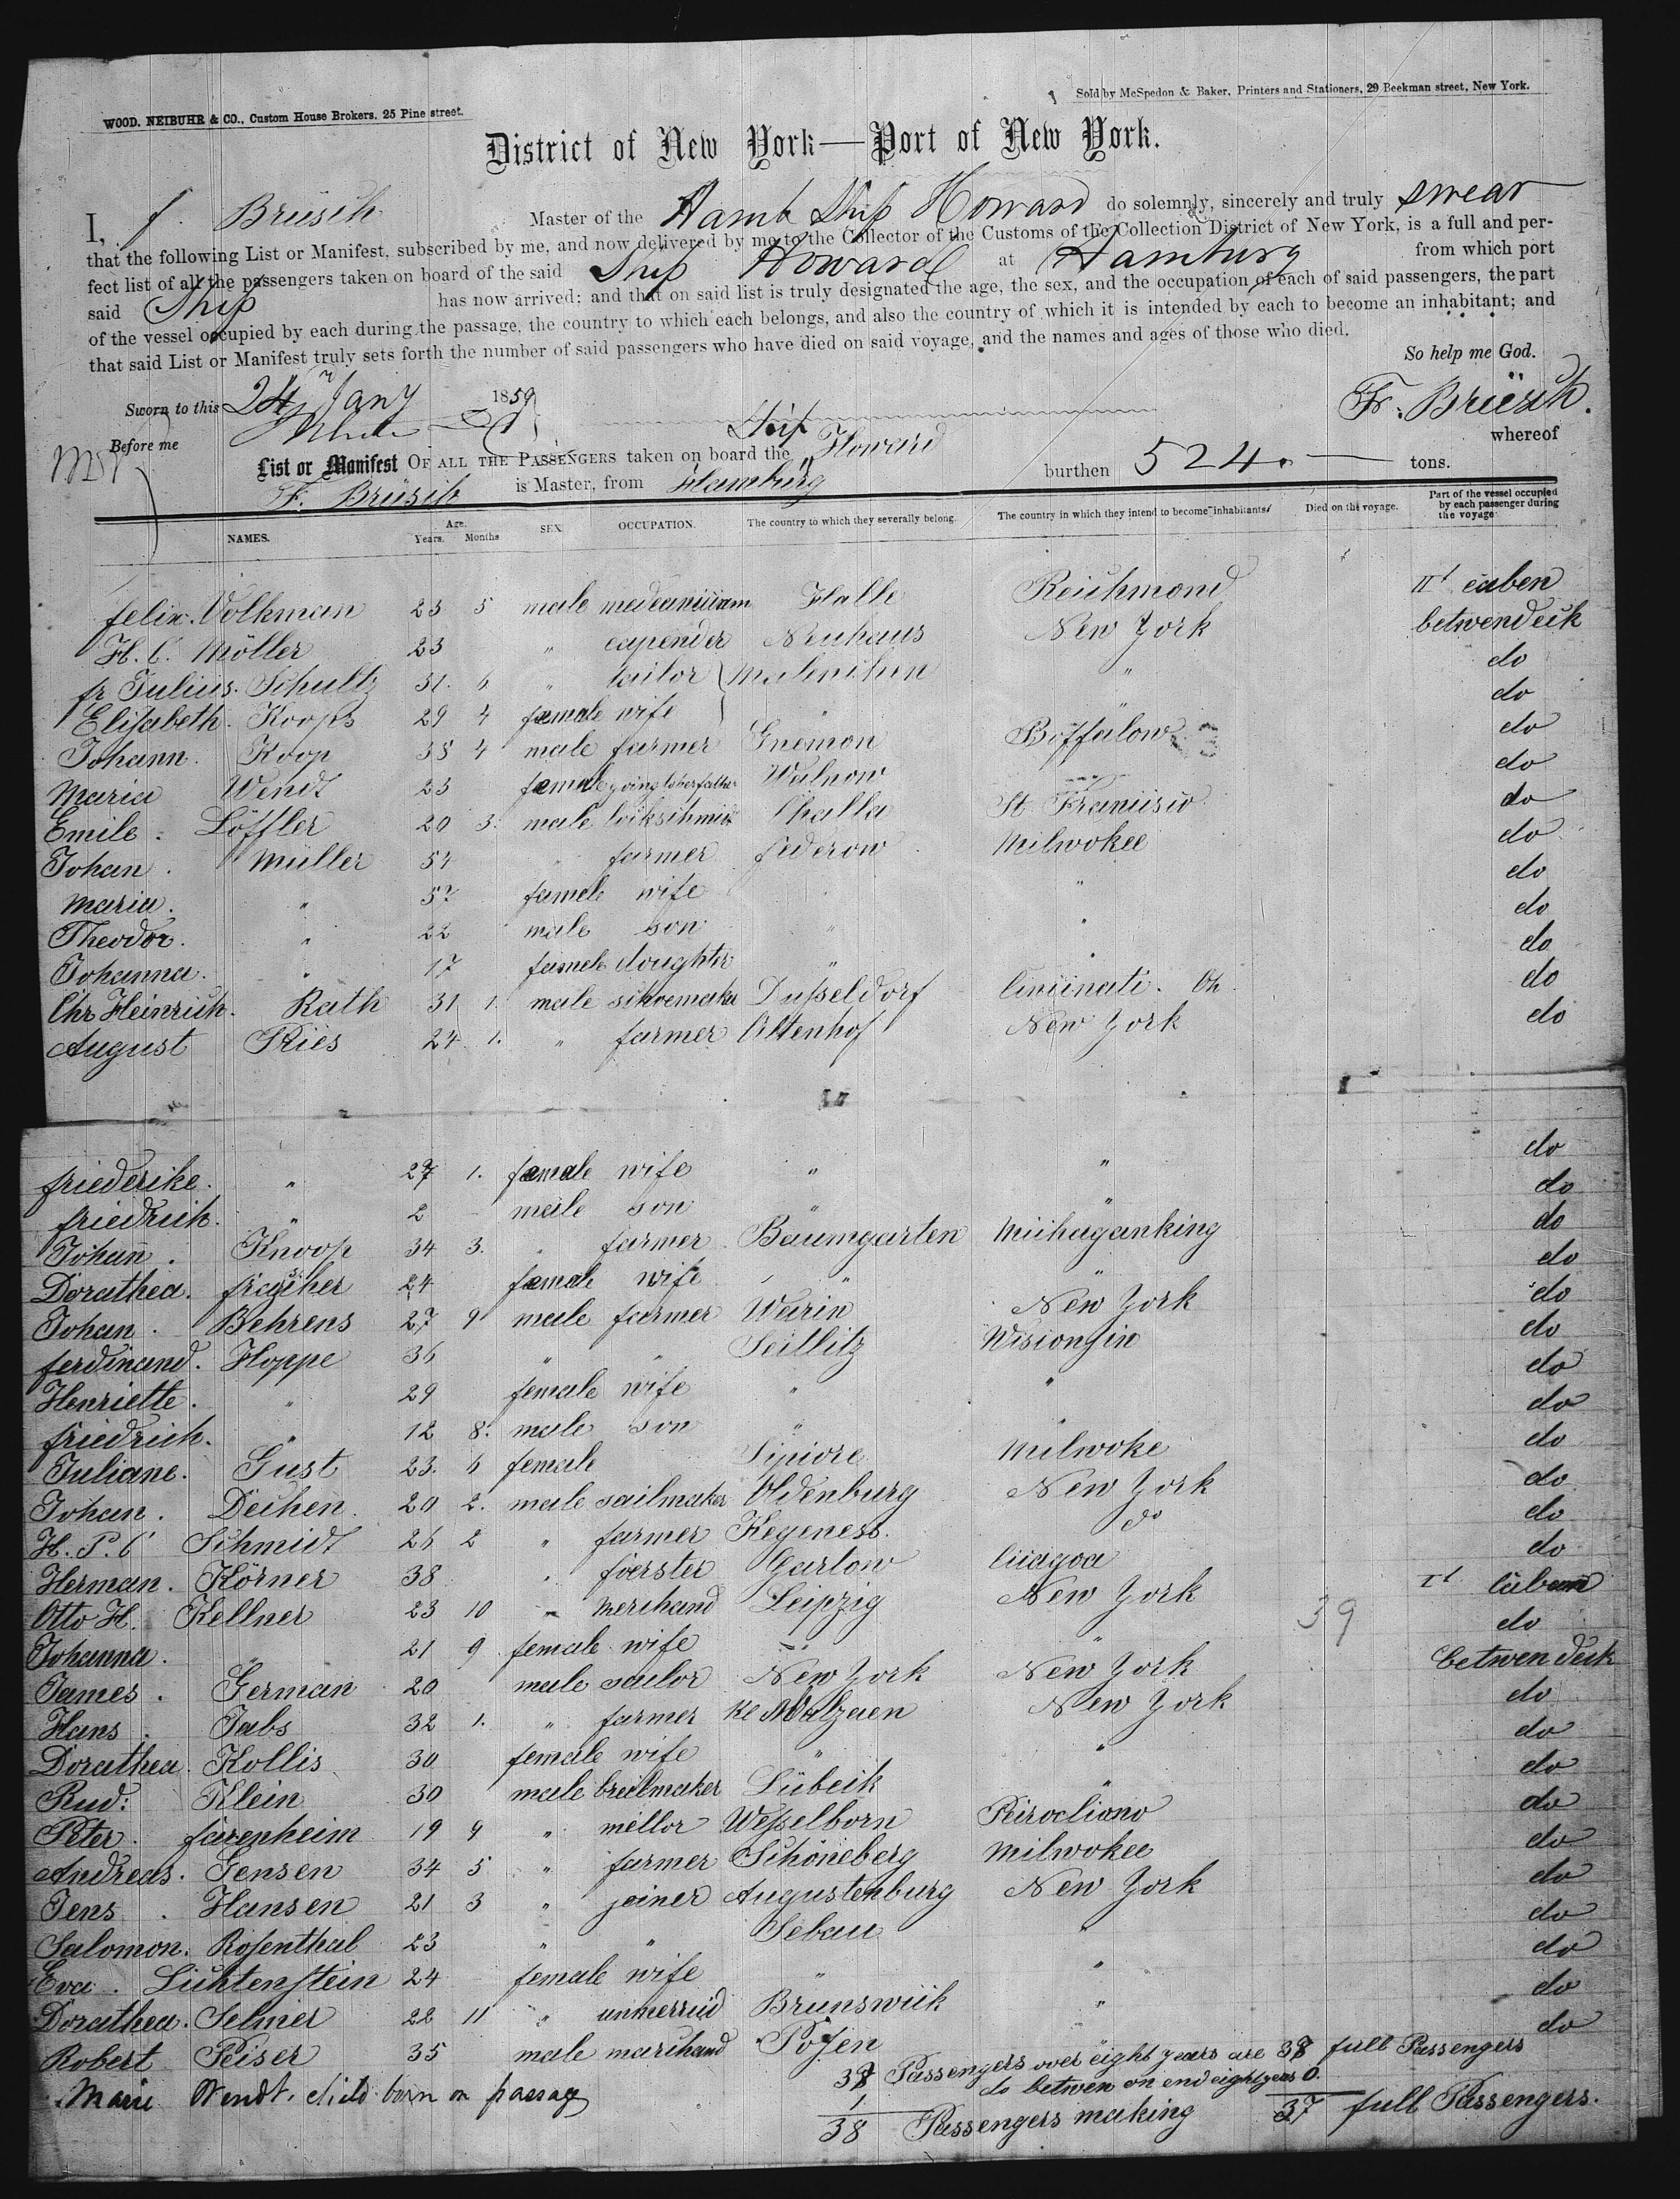 WOOD, NEIBUHR & CO., Custom House Brokers, 25 Pine street.
Sold by McSpedon & Baker, Printers and Stationers, 29 Beekman street, New York.
District of New York—Port of New York.
I, f. Brüsch Master of the Hamb Ship Howard do solemnly, sincerely and truly swear
that the following List or Manifest, subscribed by me, and now delivered by me to the Collector of the Customs of the Collection District of New York, is a full and per-
fect list of all the passengers taken on board of the said Ship Howard at Hamburg from which port
said Ship has now arrived; and that on said list is truly designated the age, the sex, and the occupation of each of said passengers, the part
of the vessel occupied by each during the passage, the country to which each belongs, and also the country of which it is intended by each to become an inhabitant; and
that said List or Manifest truly sets forth the number of said passengers who have died on said voyage, and the names and ages of those who died.
So help me God.
Sworn to this 24 Jany 1859
Fr. Brüsch.
Before me
List or Manifest OF ALL THE PASSENGERS taken on board the Ship Howard whereof
F. Brüsch is Master, from Hamburg burthen 524. tons.
NAMES. Age. Years. Months SEX OCCUPATION. The country to which they severally belong. The country in which they intend to become inhabitants. Died on the voyage. Part of the vessel occupied by each passenger during the voyage
felix. Volkman 23 5 male Halle Reichmond IId caben
H. C. Möller 23 " capender Neuhaus New York betwendeck
fr Julius. Schultz 31. 6 " tailor Malenichen " do
Elisabeth. Koops 29 4 female wife " " do
Johann. Koop 35 4 male farmer Gnemon Boffalow do
Maria Wendt 23 female going to her father Walnow do
Emile. Löffler 20 3. male lockschmidt Challa St. Francisco do
Johan. Müller 54 " farmer federow Milwokee do
Maria. " 52 famele wife " do
Theodor. " 22 male son " " do
Johanna. " 17 famele doughter " " do
Chr Heinrich. Rath 31 1. male schoemaker Dusseldorf Cincinati. Oh. do
August Pries 24 1. " farmer Altenhof New York do
friederike. " 27 1. female wife " " do
friedrich. " 2 male son " " do
Johan. Knoop 34 3. " farmer Baumgarten Michaganking do
Dorathea. 24 female wife " " do
Johan. Behrens 27 9 male farmer Warin New York do
ferdinand. Hoppe 36 " " Seillitz Wisconsin do
Henriette. " 29 female wife " " do
friedrich. " 12 8. male son " " do
Juliane. Gust 23. 6 female Milwoke do
Johan. Deihen 20 2. male sailmaker Oldenburg New York do
H. P. C Schmidt 26 2 " farmer Kegeness. do do
Herman. Körner 38 " foerster Garlow Ciiagoa do
Otto H. Kellner 23 10 " merchand Leipzig New York 39 Ist caban
Johanna. " 21 9 female wife " " do
James. German 20 male sailor New York New York betwen deck
Hans. Jabs 32 1. " farmer Kl Malzaen New York do
Dorathea. Kollis 30 female wife " " do
Rud: Klein 30 male Lübeck " do
Peter. farenheim 19 9 " mellor Wesselborn do
Andreas. Jensen 34 5 " farmer Schöneberg Milwokee do
Jens. Hansen 21 3 " joiner Augustenburg New York do
Salomon. Rosenthal 23 " " Sebau " do
Eva. Lichtenstein 24 female wife " " do
Dorathea. Selmer 22 11 " unmerried Brunswick " do
Robert Peiser 35 male marchand Posen do
37 Passengers over eight years are 37 full Passengers
Marie Wendt. child born on passage
1 do betwen on end eight years 0.
38 Passengers making 37 full Passengers.